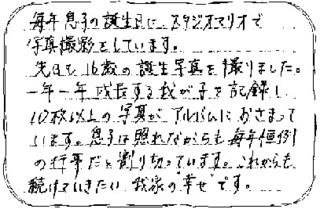 毎年息子の誕生日に、スタジオマリオで
写真撮影をしています。
先日も16歳の誕生写真を撮りました。
一年一年成長する我が子を記録し
10枚以上の写真がアルバムにおさまって
います。息子は照れながらも毎年恒例
の行事だと割り切っています。これからも
続けていきたい、我家の"幸せ"です。